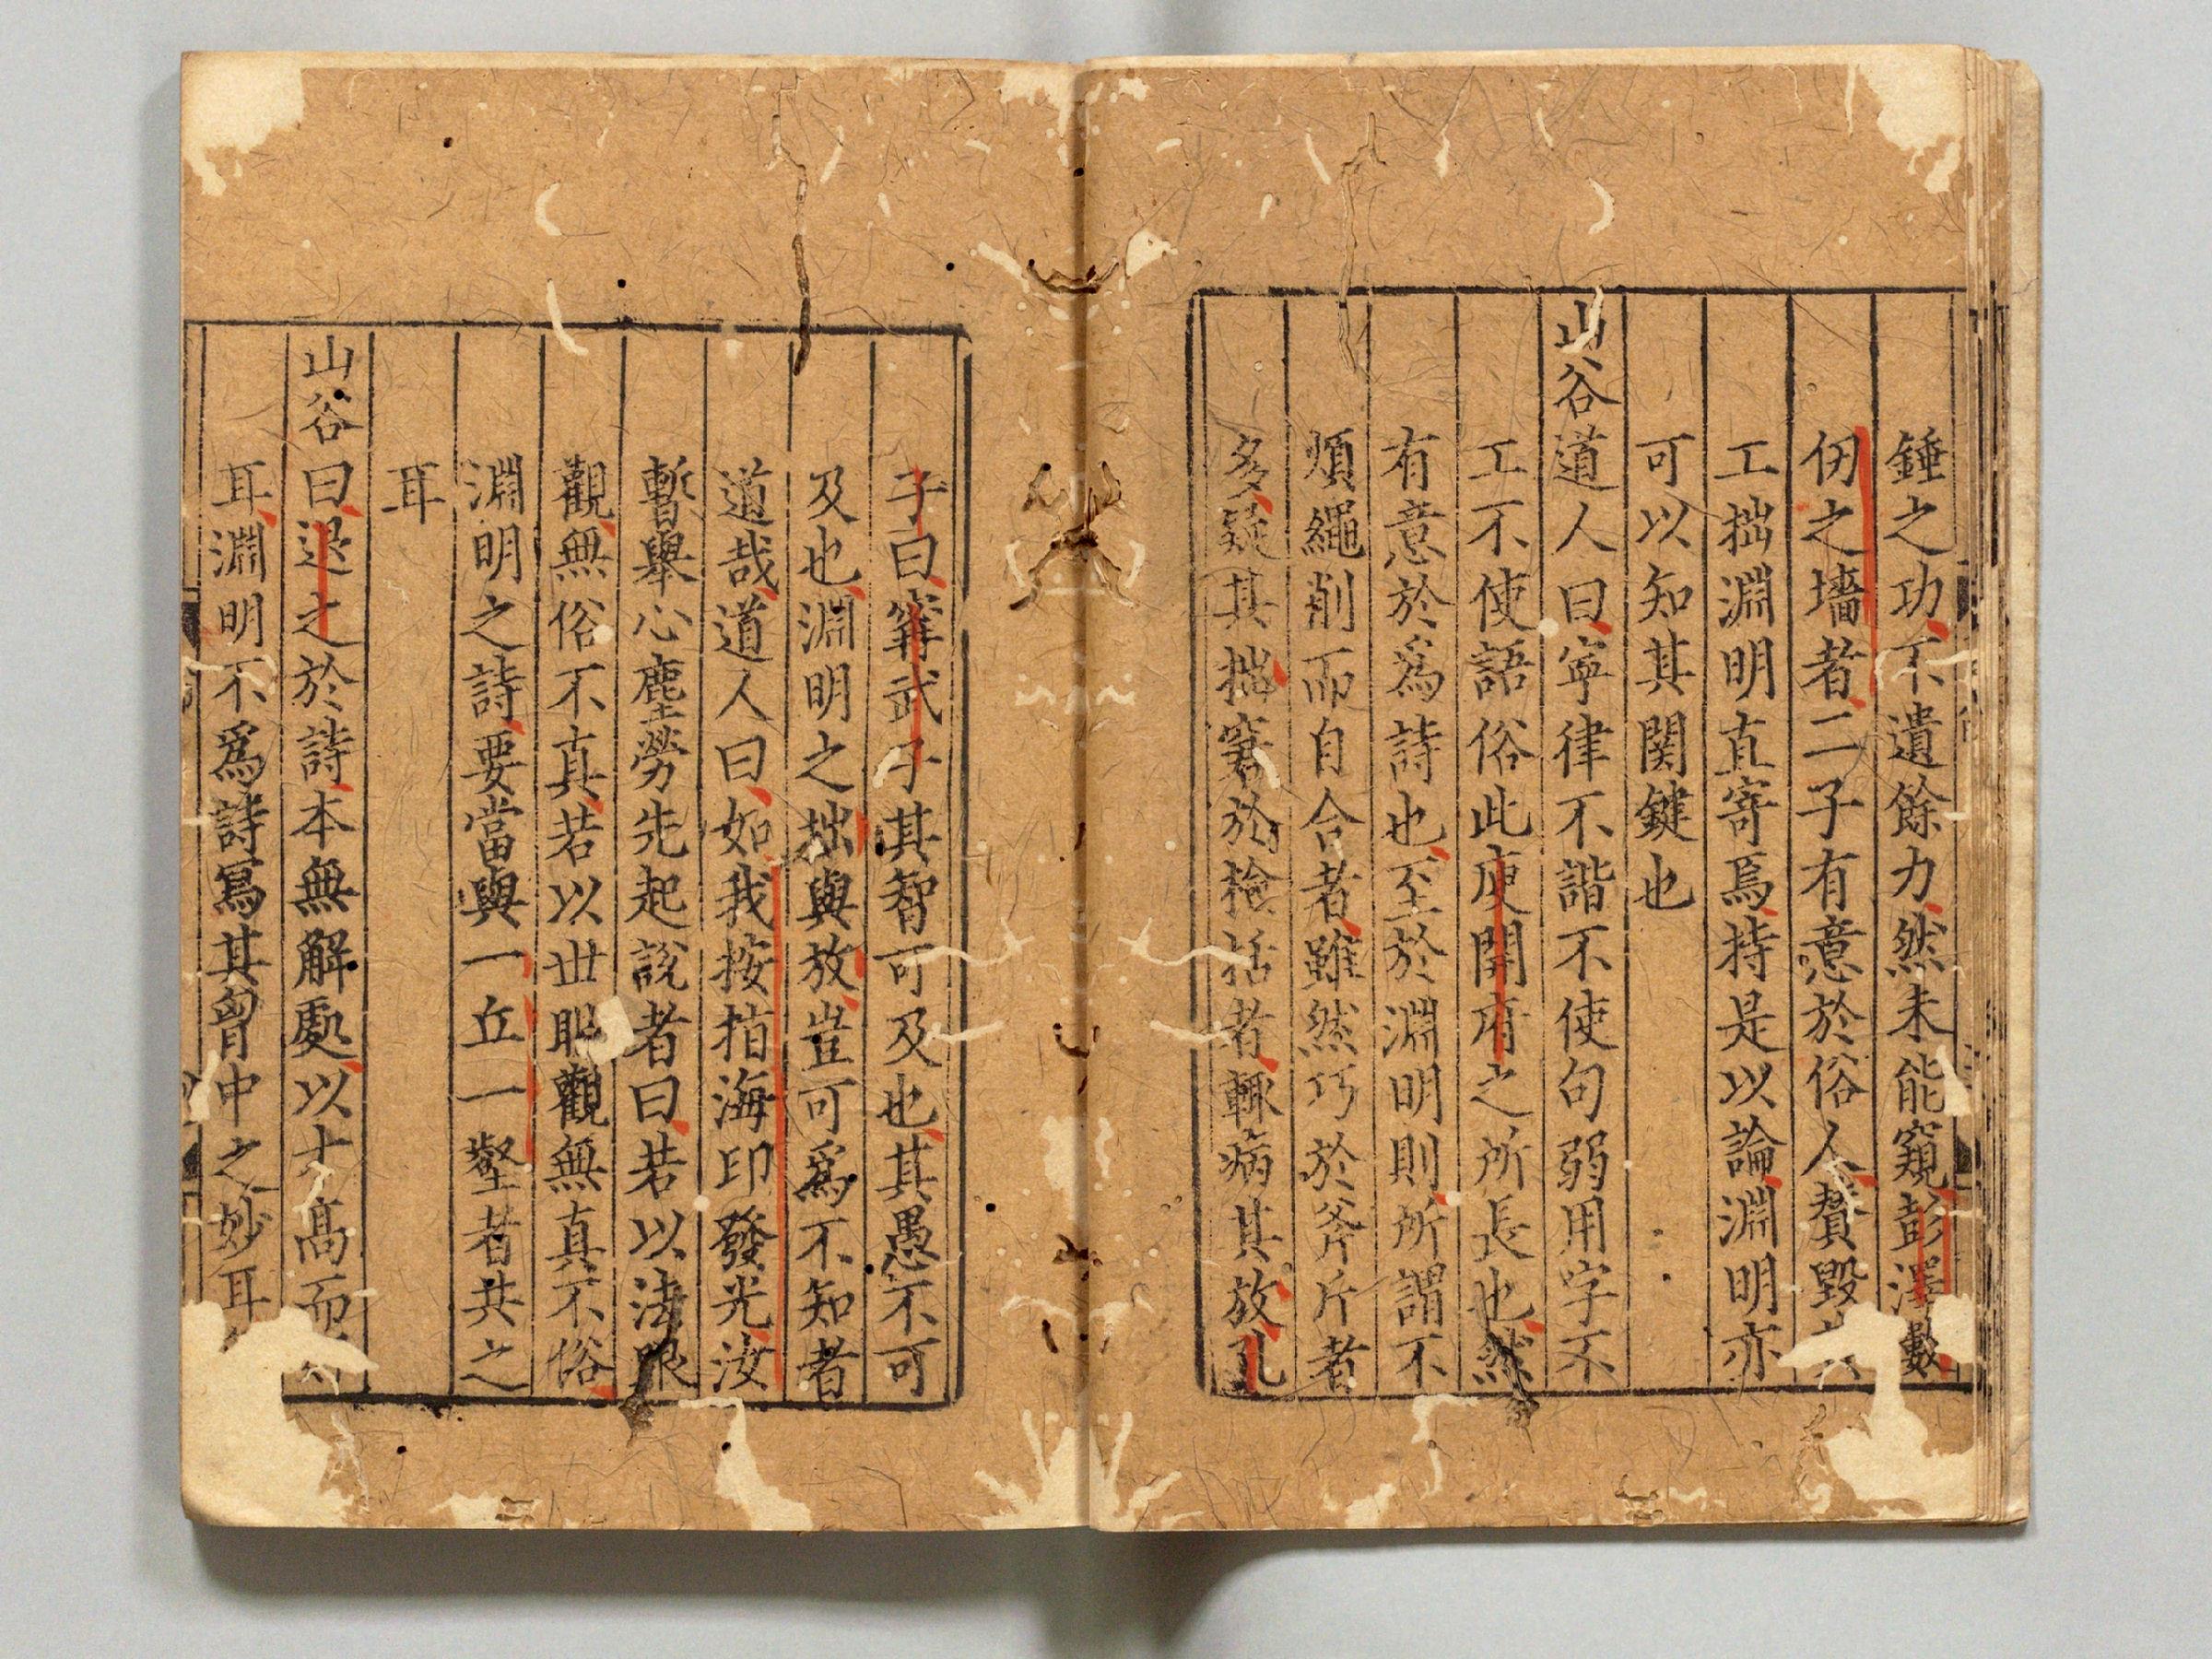 錘之功不遺餘力然未能窺彭澤數
仞之墻者二子有意於俗人贊毀其
工拙淵明直寄焉持是以論淵明亦
可以知其関鍵也
山谷道人曰寧律不諧不使句弱用字不
工不使語俗此庾開府之所長也然
有意於爲詩也至於淵明則所謂不
煩繩削而自合者雖然巧於斧斤者
多疑其拙窘於檢括者輒病其放孔
子曰寗武子其智可及也其愚不可
及也淵明之拙與放豈可爲不知者
道哉道人曰如我按指海印發光汝
暫擧心塵勞先起說者曰若以法眼
觀無俗不真若以丗眼觀無真不俗
淵明之詩要當與一丘一壑者共之
耳
山谷曰退之於詩本無解處以才髙而
耳淵明不爲詩寫其胷中之妙耳